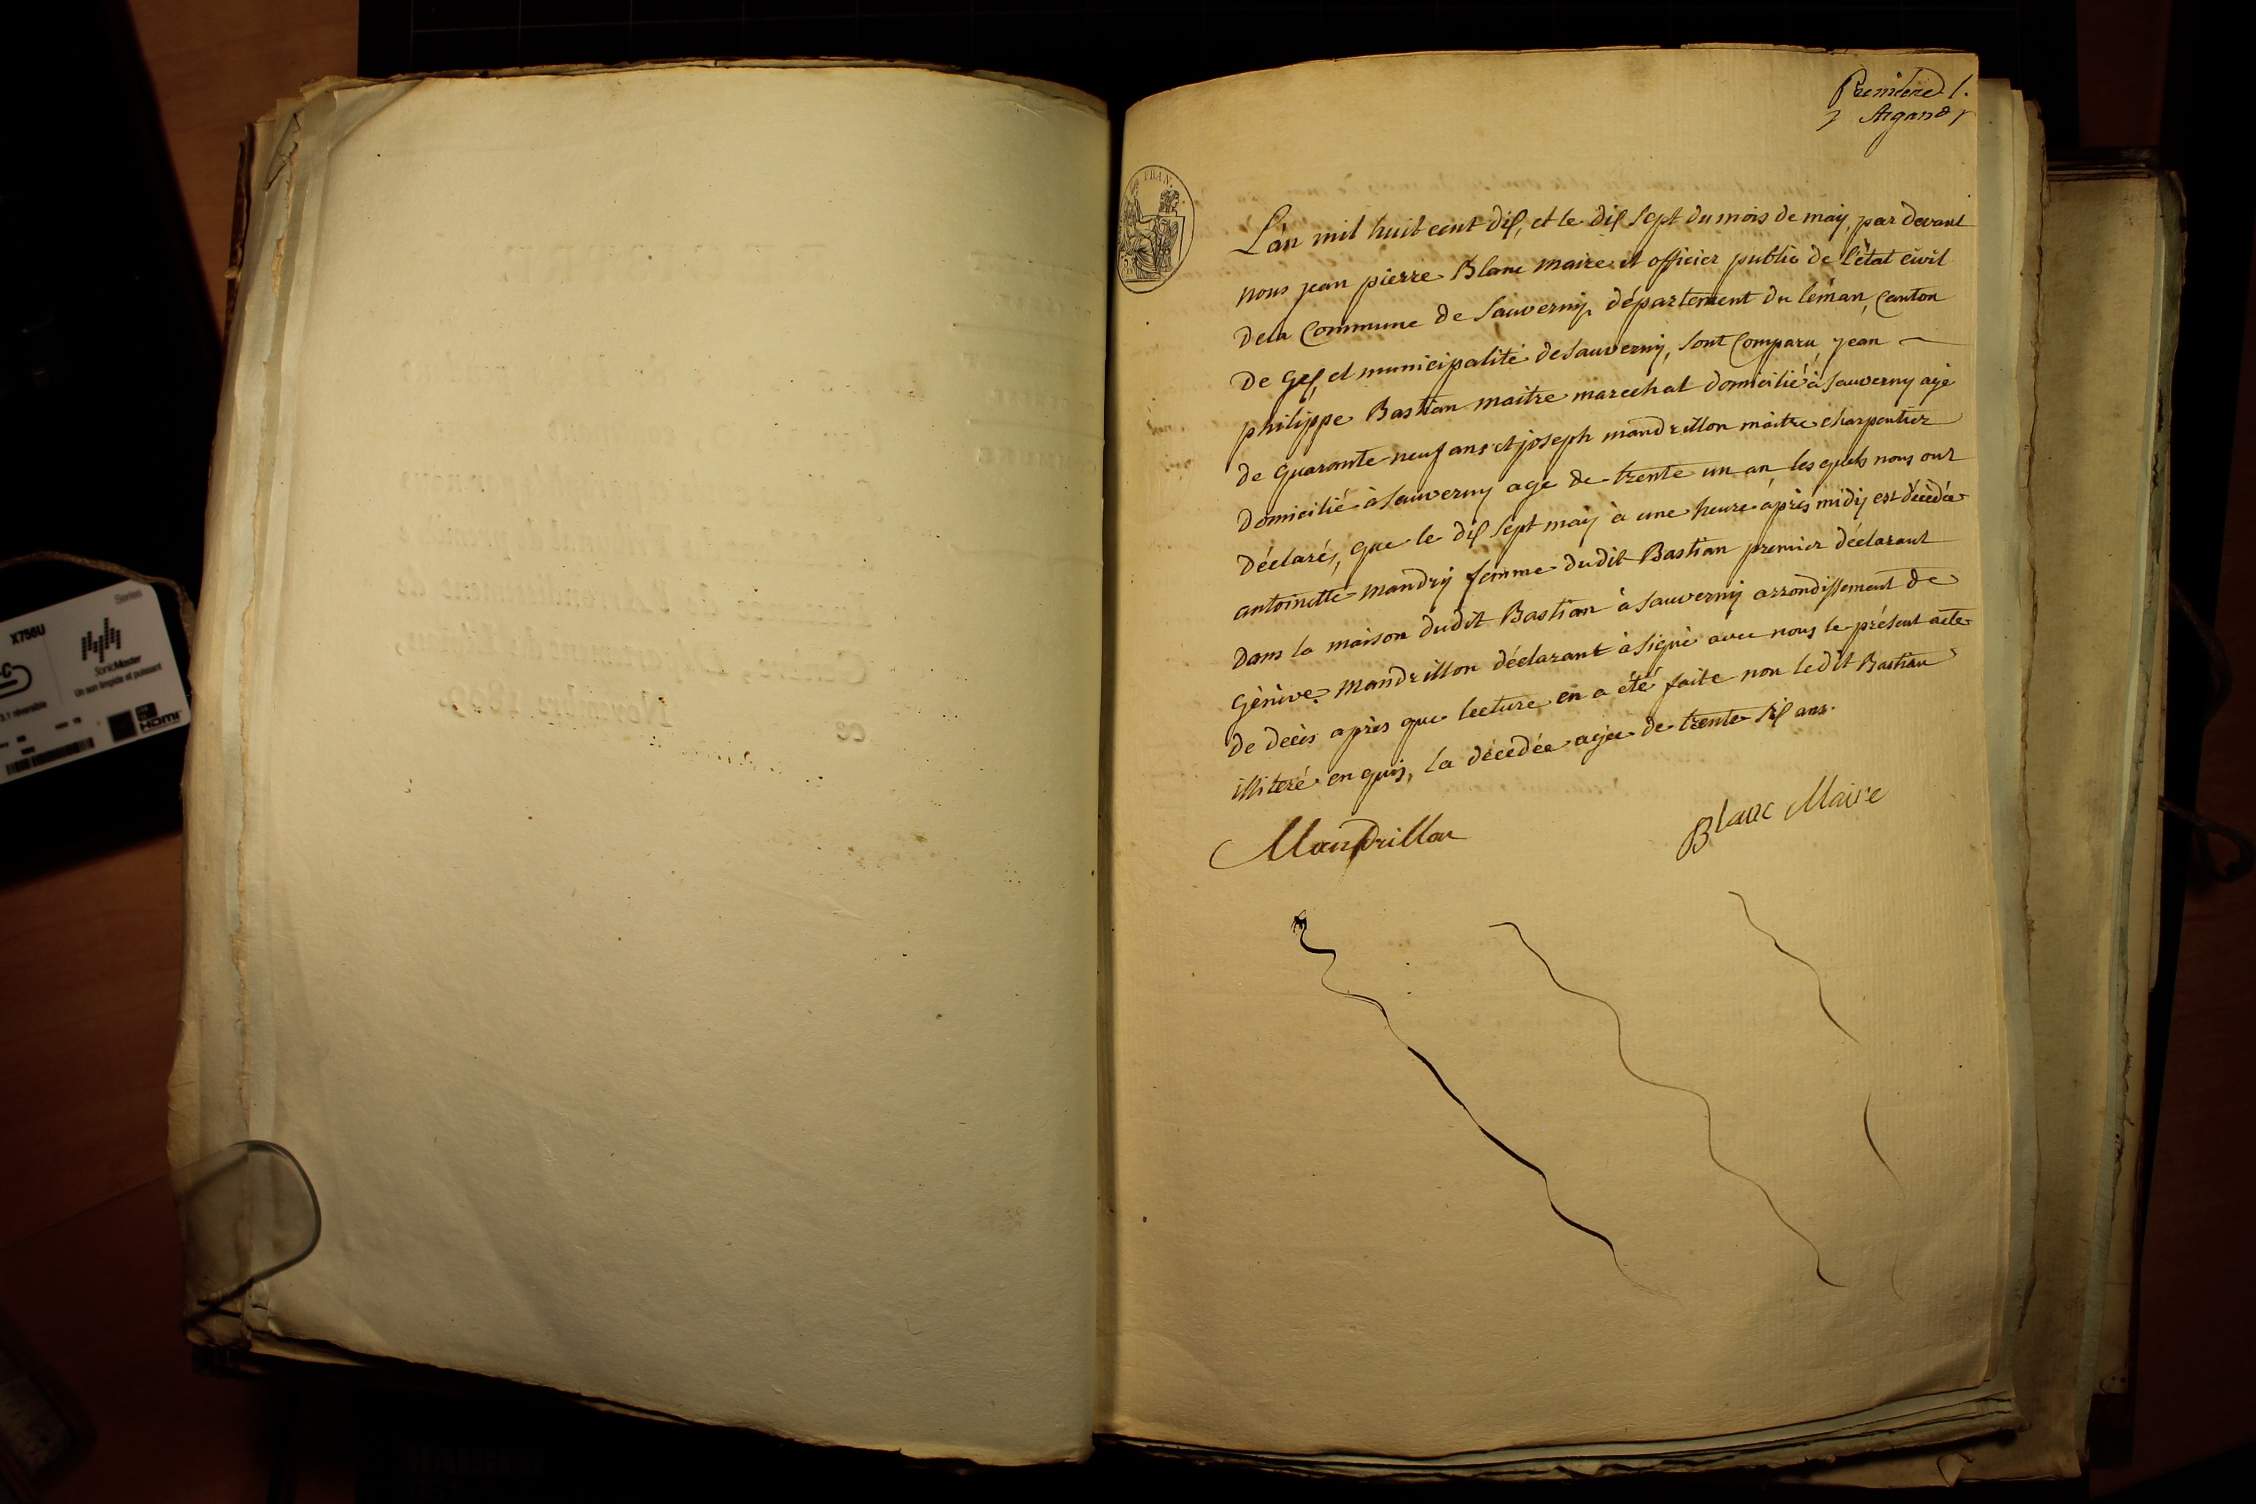 Première 1.
Argand
FRAN.
L'an mil huit cent dix, et le dix sept du mois de maÿ, par devant
nous jean pierre Blanc maire et officier public de l'état civil
dela Commune de Sauvernÿ, département du léman, Canton
de Gex, et municipalité de Sauvernÿ, sont Comparu jean
philippe Bastian maitre marechal domicilié à Sauverny agé
de quarante neuf ans et joseph mandrillon maitre charpentier
domicilié à Sauverny age de trente un an lesquels nous ont
déclarés, que le dix sept maÿ à une heure après midÿ est décédée
antoinette mandrÿ femme dudit Bastian premier déclarant
dans la maison dudit Bastian à Sauvernÿ arrondissement de
Génève. Mandrillon déclarant à signé avec nous le présent acte
de décès après que lecture en a été faite non ledit Bastian
illiteré enquis, la décédée agée de trente six ans.
Mandrillon
Blanc Maire
Novembre 1809
X756U
Series
SonicMaster
Un son limpide et puissant
3.1 réversible
HDMI